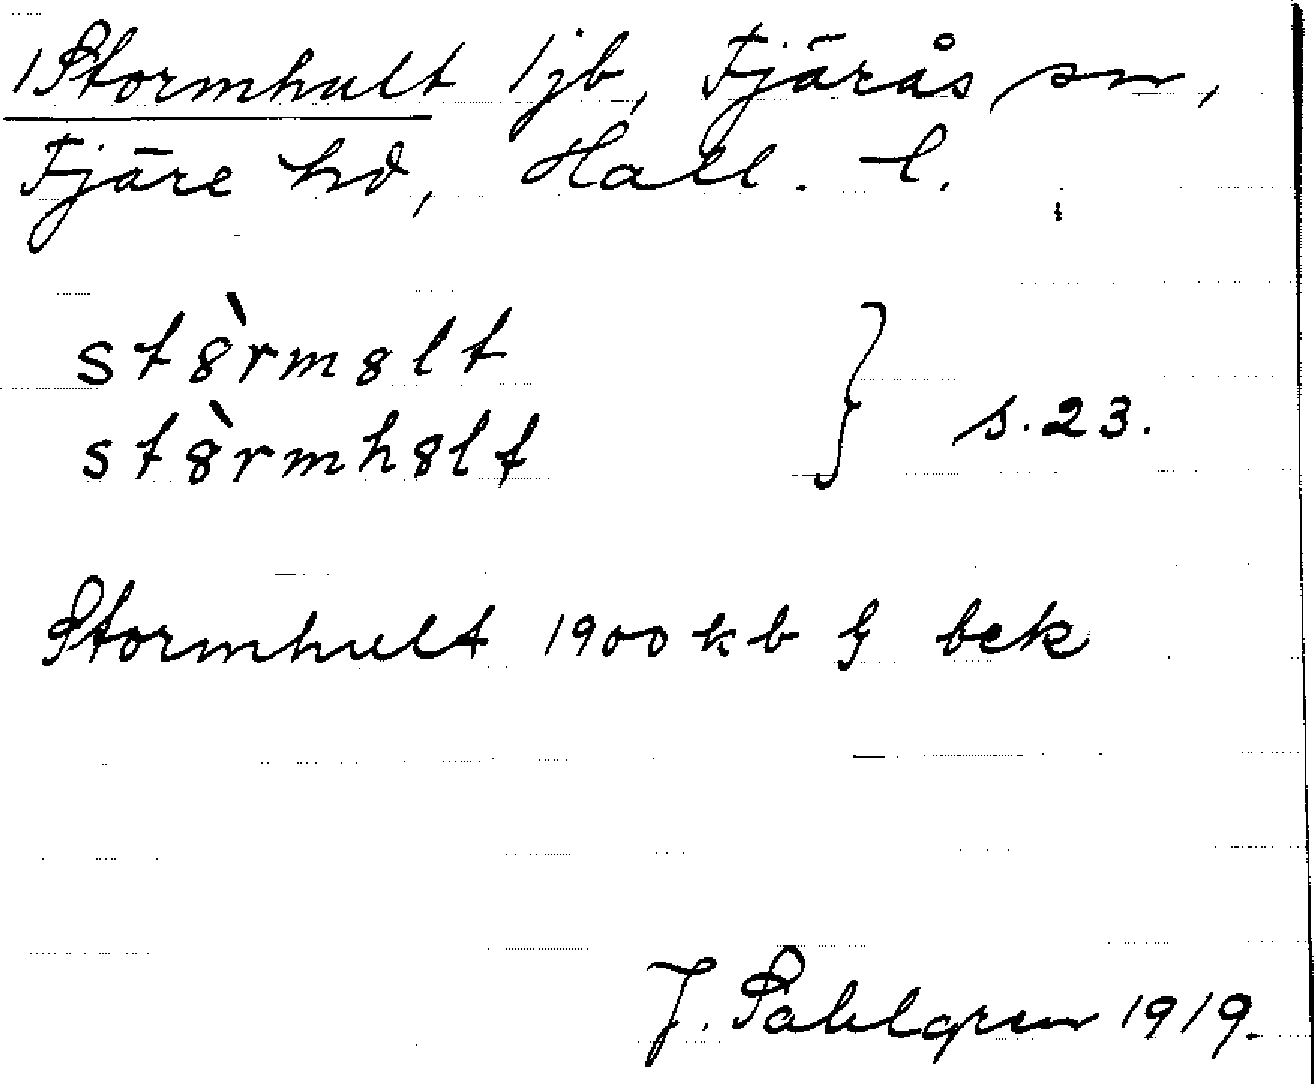 Stormhult 1 jb, Fjärås sn,
Fjäre hd, Hall. l.
st8̀rm8lt
st8̀rmh8lt } s. 23.
Stormhult 1900 kb bek
J. Sahlgren 1919.